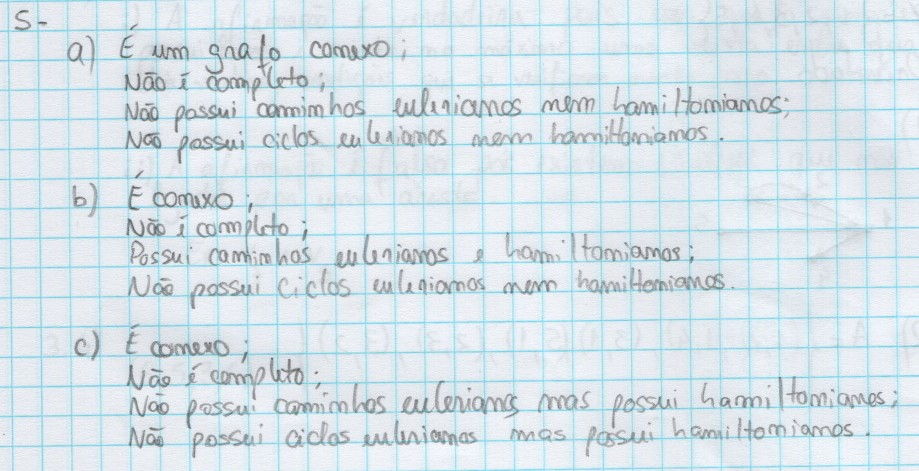 5-
a) É um grafo conexo;
Não é completo;
Não possui caminhos eulerianos nem hamiltonianos;
Não possui ciclos eulerianos nem hamiltonianos.
b) É conexo;
Não é completo;
Possui caminhos eulerianos e hamiltonianos;
Não possui ciclos eulerianos nem hamiltonianos.
c) É conexo;
Não é completo;
Não possui caminhos eulerianos mas possui hamiltonianos;
Não possui ciclos eulerianos mas possui hamiltonianos.